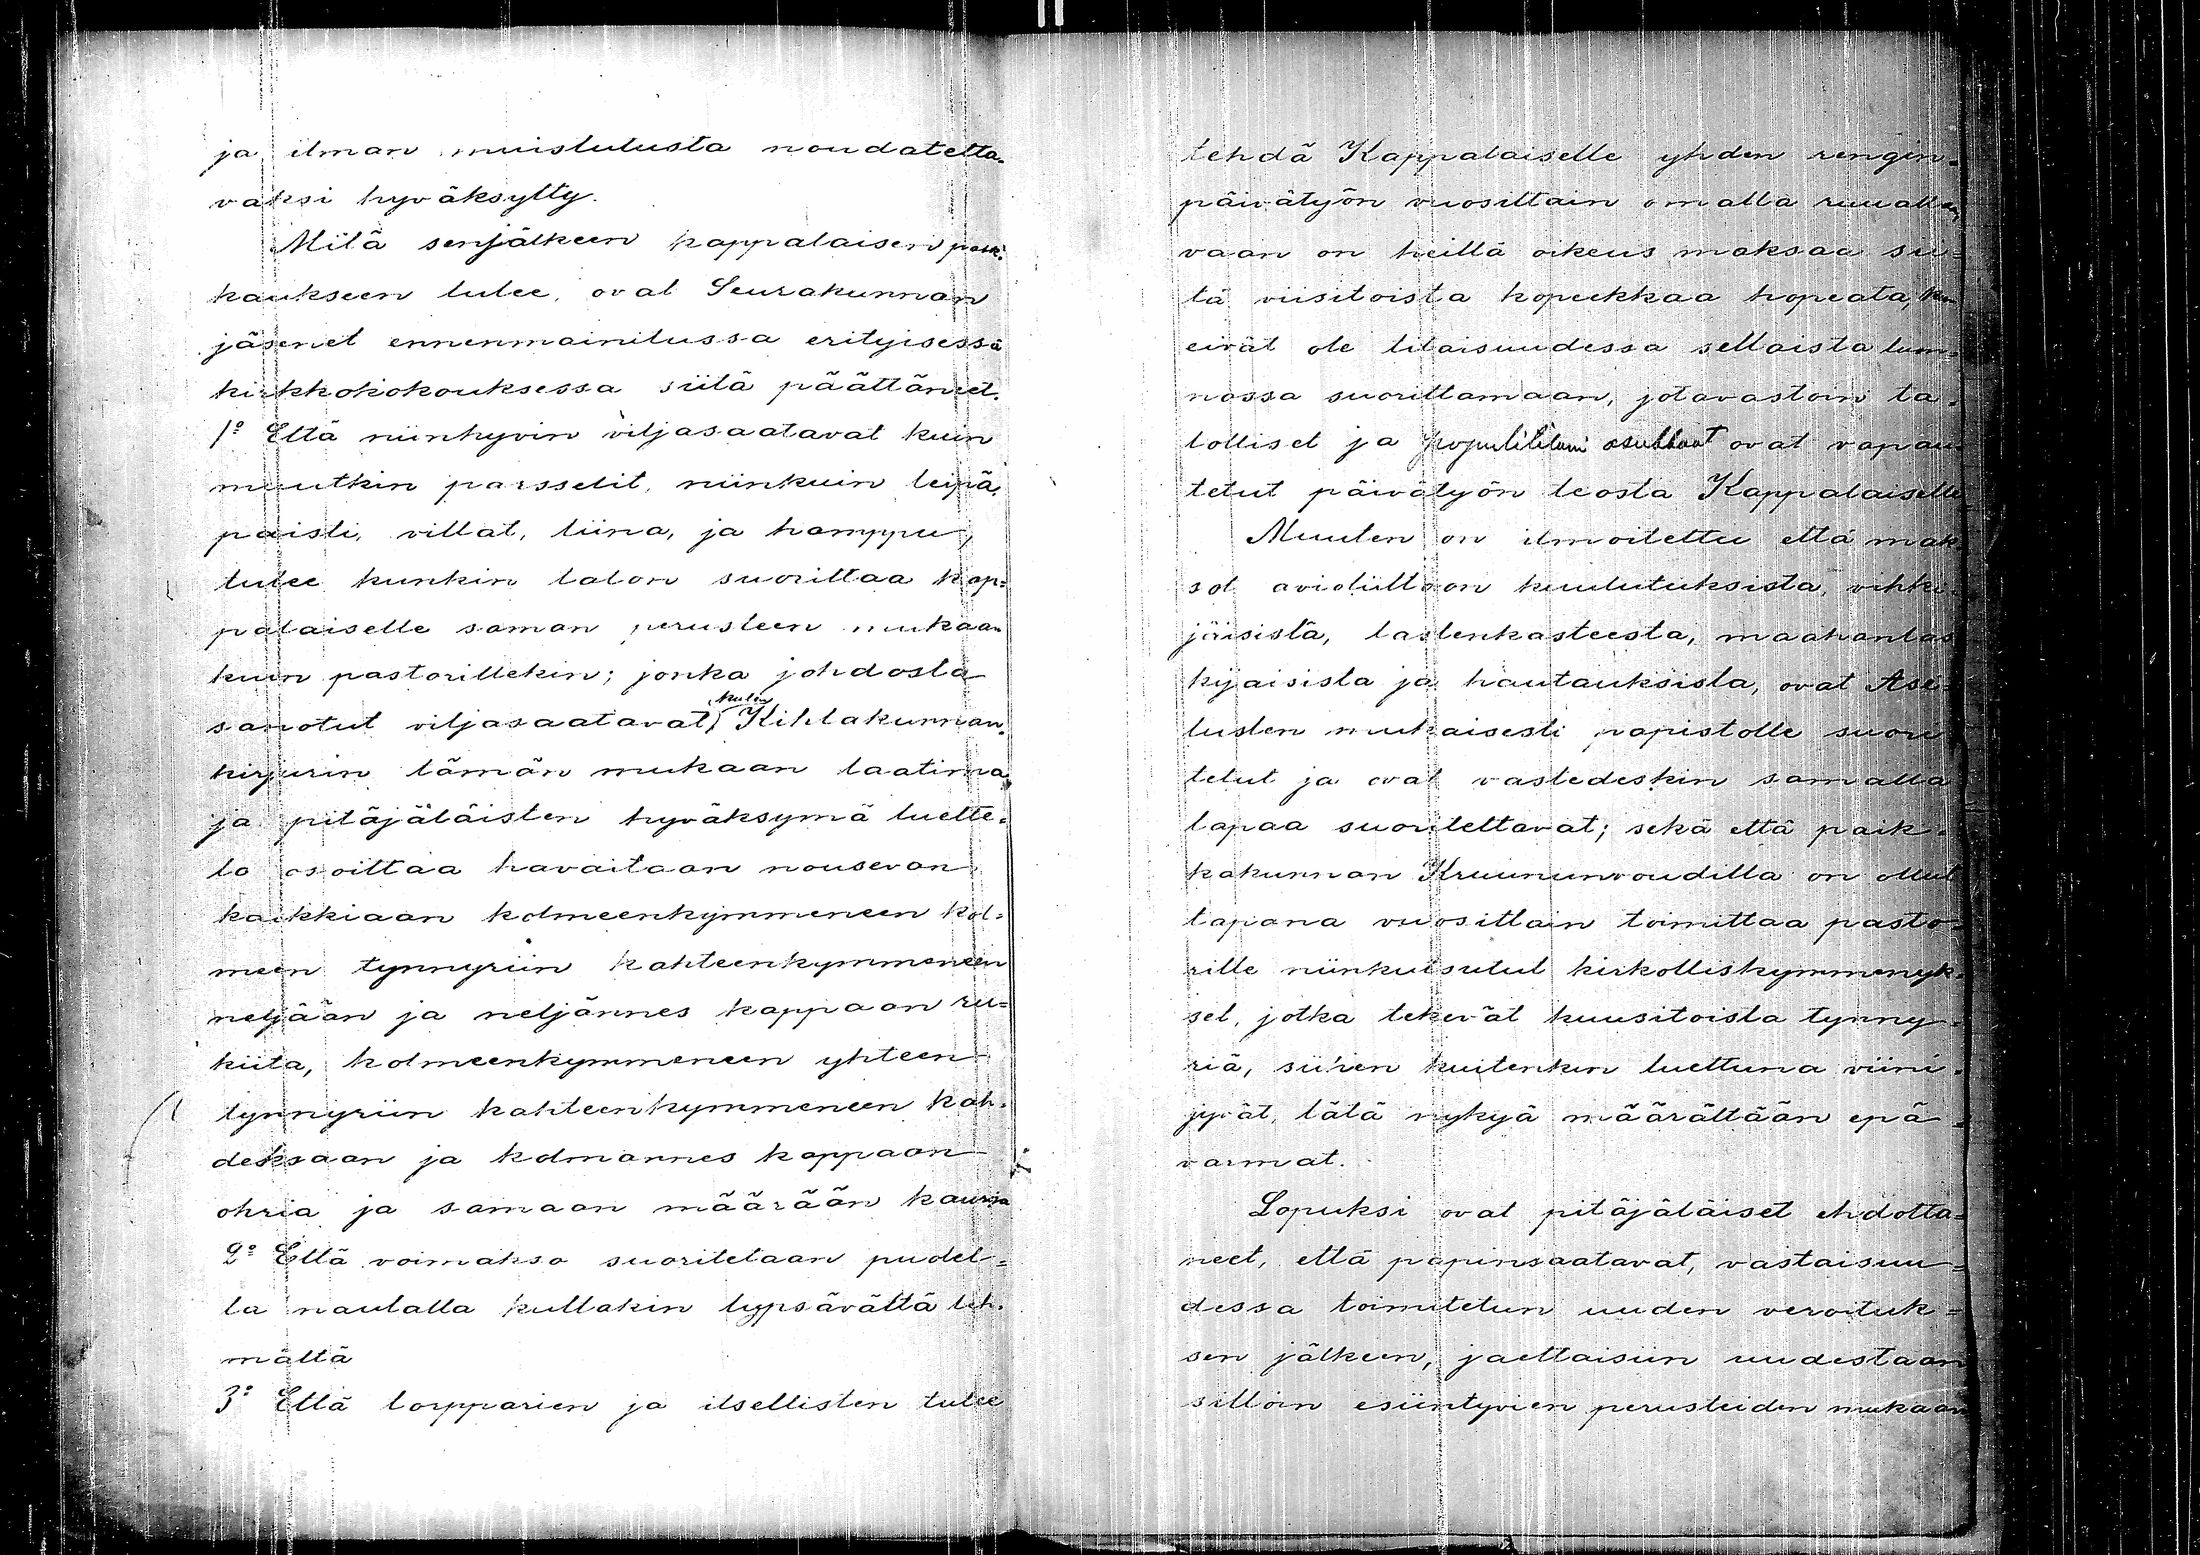 ja ilman muistutusta noudatetta-
vaksi hyväksytty.
Mitä senjälkeen kappalaisen palk-
kaukseen tulee, ovat Seurakunnan
jäsenet ennenmainitussa erityisessä
kirkkokokouksessa siitä päättäneet.
1:o Että niinhyvin viljasaatavat kuin
muutkin parsselit, niinkuin leipä,
paisti, villat, liina, ja hamppu,
tulee kunkin talon suorittaa kap=
palaiselle saman perusteen mukaan
kuin pastorillekin; jonka johdosta
sanotut viljasaatavat, kuten Kihlakunnan-
kirjurin tämän mukaan laatima
ja pitäjäläisten hyväksymä luette=
lo osoittaa havaitaan nousevan
kaikkiaan kolmeenkymmeneen kol=
meen tynnyriin kahteenkymmeneen
neljään ja neljännes kappaan ru=
kiita, kolmeenkymmeneen yhteen
tynnyriin kahteenkymmeneen kah-
deksaan ja kolmannes kappaan
ohria ja samaan määrään kauroja
2:o Että voimakso suoritetaan puolel=
la naulalla kullakin lypsävältä leh-
mältä
3:o Että torpparien ja itsellisten tulee
tehdä Kappalaiselle yhden rengin-
päivätyön vuosittain omalla ruualla,
vaan on heillä oikeus maksaa sii=
tä viisitoista kopeekkaa hopeata,
eivät ole tilaisuudessa sellaista luon-
nossa suorittamaan, jotavastoin ta-
lolliset ja ovat vapau-
tetut päivätyön teosta Kappalaiselle
Muuten on ilmoitettu että mak-
sot avioliittoon kuulutuksista, vihki-
jäisistä, lastenkasteesta, maahanlas
kijaisista ja hautauksista, ovat Ase=
tusten mukaisesti papistolle suori
tetut ja ovat vastedeskin samalla
tapaa suoritettavat; sekä että paik-
kakunnan Kruununvoudilla on ollut
tapana vuosittain toimittaa pasto-
rille niinkutsutut kirkolliskymmenyk-
set, jotka tekevät kuusitoista tynny-
riä, siihen kuitenkin luettuna viini-
jyvät, tätä nykyä määrättään epä-
varmat.
Lopuksi ovat pitäjäläiset ehdotta=
neet, että papinsaatavat, vastaisuu=
dessa toimitetun uuden veroituk=
sen jälkeen, jaettaisiin uudestaan
silloin esiintyvien perusteiden mukaan